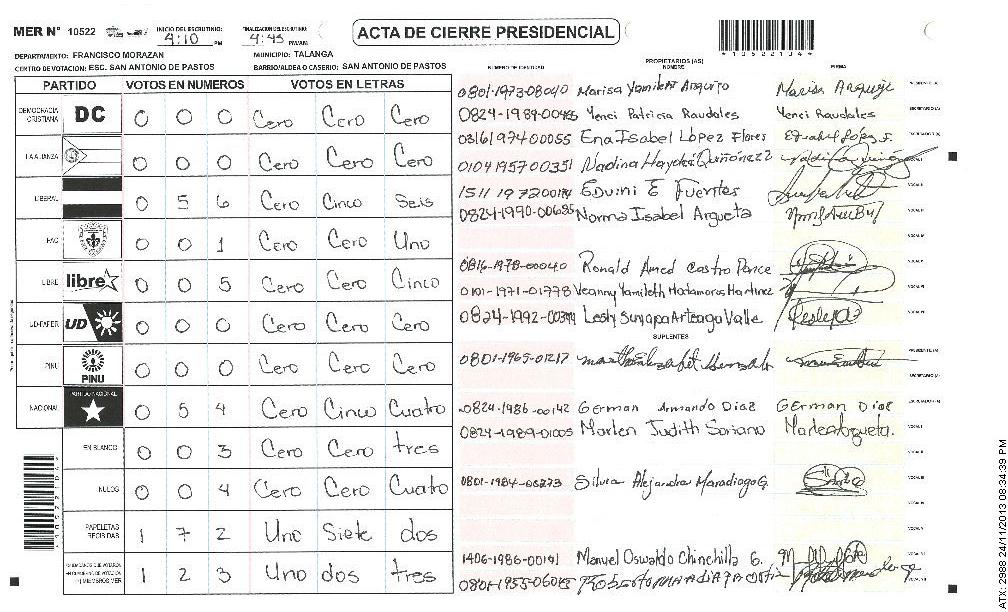 MER N° 10522
INICIO DEL ESCRUTINIO: 4:10 PM
FINALIZACION DEL ESCRUTINIO: 4:45 PM/AM
ACTA DE CIERRE PRESIDENCIAL
*10522134*
DEPARTAMENTO: FRANCISCO MORAZAN
MUNICIPIO: TALANGA
CENTRO DE VOTACION: ESC. SAN ANTONIO DE PASTOS
BARRIO/ALDEA O CASERIO: SAN ANTONIO DE PASTOS
PARTIDO VOTOS EN NUMEROS VOTOS EN LETRAS
DEMOCRACIA CRISTIANA DC 0 0 0 Cero Cero Cero
LA ALIANZA 0 0 0 Cero Cero Cero
LIBERAL 0 5 6 Cero Cinco Seis
PAC 0 0 1 Cero Cero Uno
LIBRE libre 0 0 5 Cero Cero Cinco
UD-FAPER UD 0 0 0 Cero Cero Cero
PINU PINU 0 0 0 Cero Cero Cero
NACIONAL PARTIDO NACIONAL 0 5 4 Cero Cinco Cuatro
EN BLANCO 0 0 3 Cero Cero tres
NULOS 0 0 4 Cero Cero Cuatro
PAPELETAS RECIBIDAS 1 7 2 Uno Siete dos
1 2 3 Uno dos tres
NUMERO DE IDENTIDAD
PROPIETARIOS (AS)
NOMBRE
FIRMA
0801-1973-08040 Marisa Yamileth Arguijo
0824-1989-00485 Yenci Patricia Raudales Yenci Raudales
0316197400055 Ena Isabel López Flores
0104195700351 Nadina Haydeé Quiñónez
Edvini E Fuentes
0824-1990-00685 Norma Isabel Argueta
0816-1978-00040 Ronald Amed Castro Ponce
0101-1971-01778 Yeanny Yamileth Matamoros Martinez
Lesly Suyapa Arteaga Valle
SUPLENTES
0801-1965-01217
0824-1986-00142 German Armando Diaz German Diaz
0824-1989-01005 Marlen Judith Soriano
0801-1984-05273 Silvia Alejandra Maradiaga G.
1406-1986-00191 Manuel Oswaldo Chinchilla G.
ATX: 2988 24/11/2013 08:34:39 PM